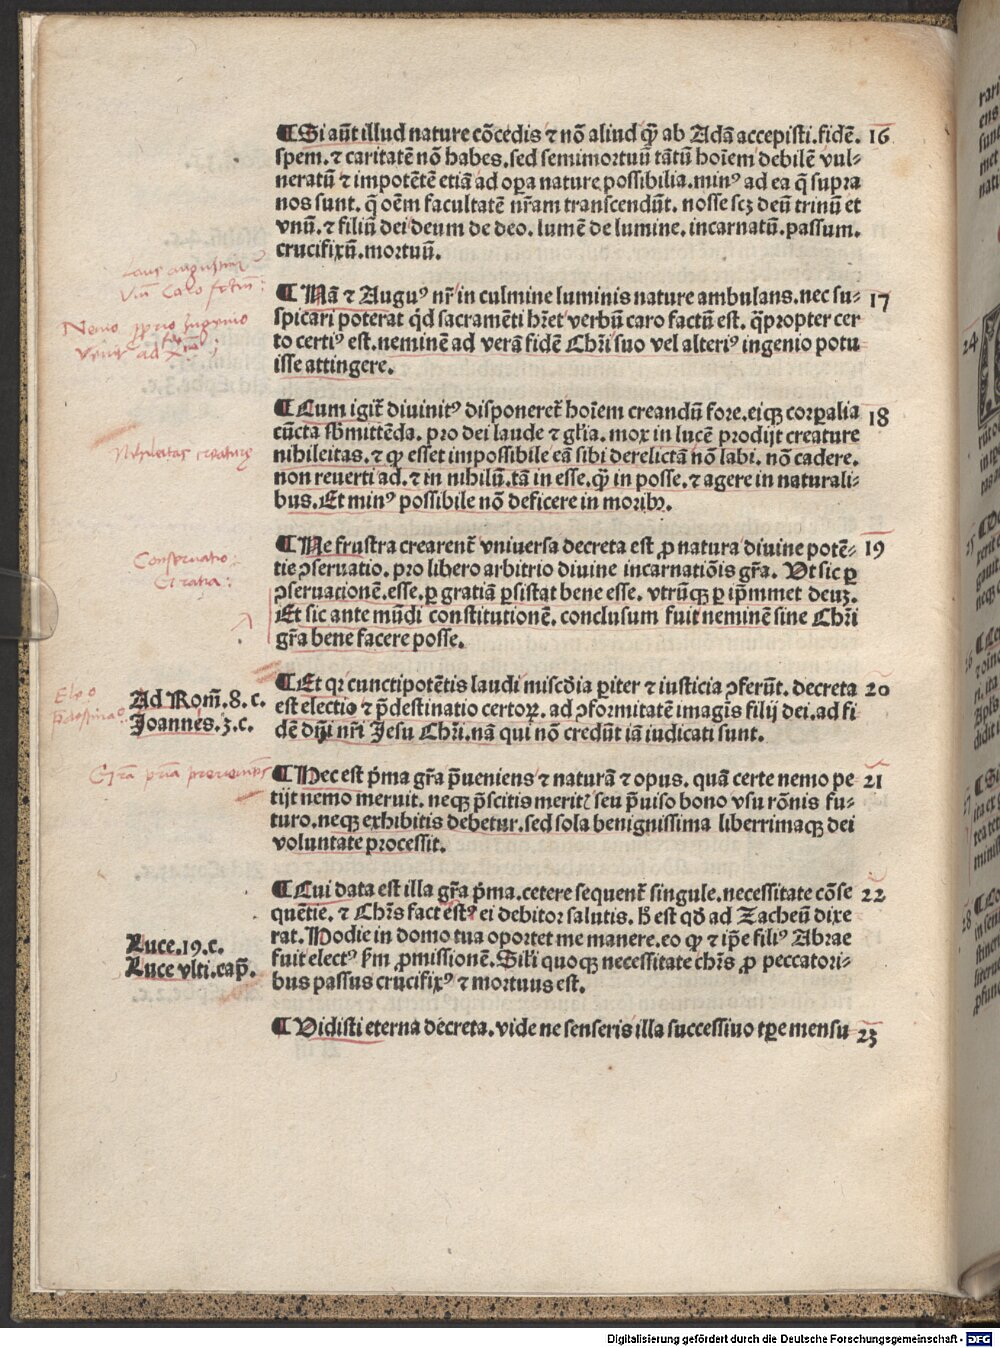 ¶ Si aūt illud nature cōcedis ⁊ nō aliud q̄ȝ ab Adā accepisti. fidē. 16
spem. ⁊ caritatē nō habes. sed semimortuū tātū hoīem debilē vul⸗
neratū ⁊ impotētē etiā ad oꝑa nature possibilia. minꝰ ad ea q̄ supra
nos sunt. q̄ oēm facultatē nr̄am transcendūt. nosse scȝ deū trinū et
vnū. ⁊ filiū dei deum de deo. lumē de lumine. incarnatū. passum.
crucifixū. mortuū.
¶ Nā ⁊ Auguꝰ nr̄ in culmine luminis nature ambulans. nec su⸗ 17
spicari poterat q̇d sacramēti hr̄et verbū caro factū est. q̄propter cer
to certiꝰ est. neminē ad verā fidē Chr̄i suo vel alteriꝰ ingenio potu
isse attingere.
¶ Cum igit̄ diuinitꝰ disponeret̄ hoīem creandū fore. eiqꝫ corꝑalia 18
cūcta sb̄mittēda. pro dei laude ⁊ gl̄ia. mox in lucē prodijt creature
nihileitas. ⁊ qꝛ esset impossibile eā sibi derelictā nō labi. nō cadere.
non reuerti ad. ⁊ in nihilū. tā in esse. q̄ȝ in posse. ⁊ agere in naturali⸗
bus. Et minꝰ possibile nō deficere in moribꝫ.
¶ Ne frustra crearent̄ vniuersa decreta est ꝓ natura diuine potē⸗ 19
tie ꝯseruatio. pro libero arbitrio diuine incarnatiōis gr̄a. Vt sic ꝑ
ꝯseruationē. esse. ꝑ gratiā ꝑsistat bene esse. vtrūqꝫ ꝑ ip̄mmet deuȝ.
Et sic ante mūdi constitutionē. conclusum fuit neminē sine Chr̄i
gr̄a bene facere posse.
¶ Et qꝛ cunctipotētis laudi mīscd̄ia ꝑiter ⁊ iusticia ꝯferūt. decreta 20
est electio ⁊ p̄destinatio certoꝝ. ad ꝯformitatē imagīs filij dei. ad fi
dē dn̄i nr̄i Jesu Chr̄i. nā qui nō credūt iā iudicati sunt.
¶ Hec est p̄ma gr̄a p̄ueniens ⁊ naturā ⁊ opus. quā certe nemo pe 21
tijt nemo meruit. neqꝫ p̄scitis meritꝭ seu p̄uiso bono vsu rōnis fu⸗
turo. neqꝫ exhibitis debetur. sed sola benignissima liberrimaqꝫ dei
voluntate processit.
¶ Cui data est illa gr̄a p̄ma. cetere sequent̄ singule. necessitate cōse 22
quētie. ⁊ Chr̄s factꝰ est ei debitor salutis. h̄ est qd̄ ad Zacheū dixe
rat. Hodie in domo tua oportet me manere. eo qꝛ ⁊ ip̄e filiꝰ Abrae
fuit electꝰ s̄m ꝓmissionē. Sil̄i quoqꝫ necessitate chr̄s ꝓ peccatori⸗
bus passus crucifixꝰ ⁊ mortuus est.
¶ Vidisti eterna decreta. vide ne senseris illa successiuo tꝑe mensu 23
Ad Rom̄. 8. c.
Joannes. 3. c.
Luce. 19. c.
Luce vlti. cap̄.
Nemo proprio Ingenio
Nihileitas creaturę
Conseruatio:
Gratia:
Gr̄a p̄ria preueniens
24
Digitalisierung gefördert durch die Deutsche Forschungsgemeinschaft - DFG